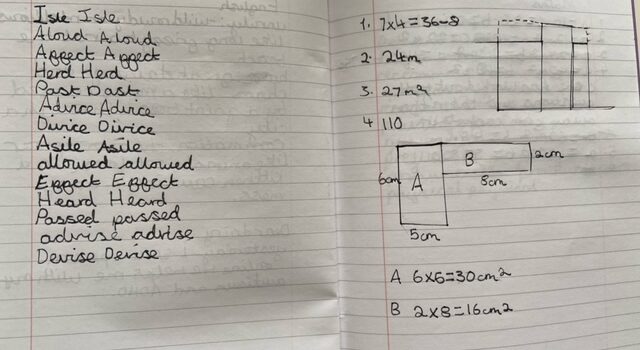 Isle Isle
Aloud Aloud
Affect Affect
Herd Herd
Past Past
Advice Advice
Divice Divice
Asile Asile
allowed allowed
Effect Effect
Heard Heard
Passed passed
advise advise
Devise Devise
1. 7x4=36-8
2. 24m
3. 27m²
4 110
B
2cm
6cm
A
8cm
5cm
A 6x6=30cm²
B 2x8=16cm2